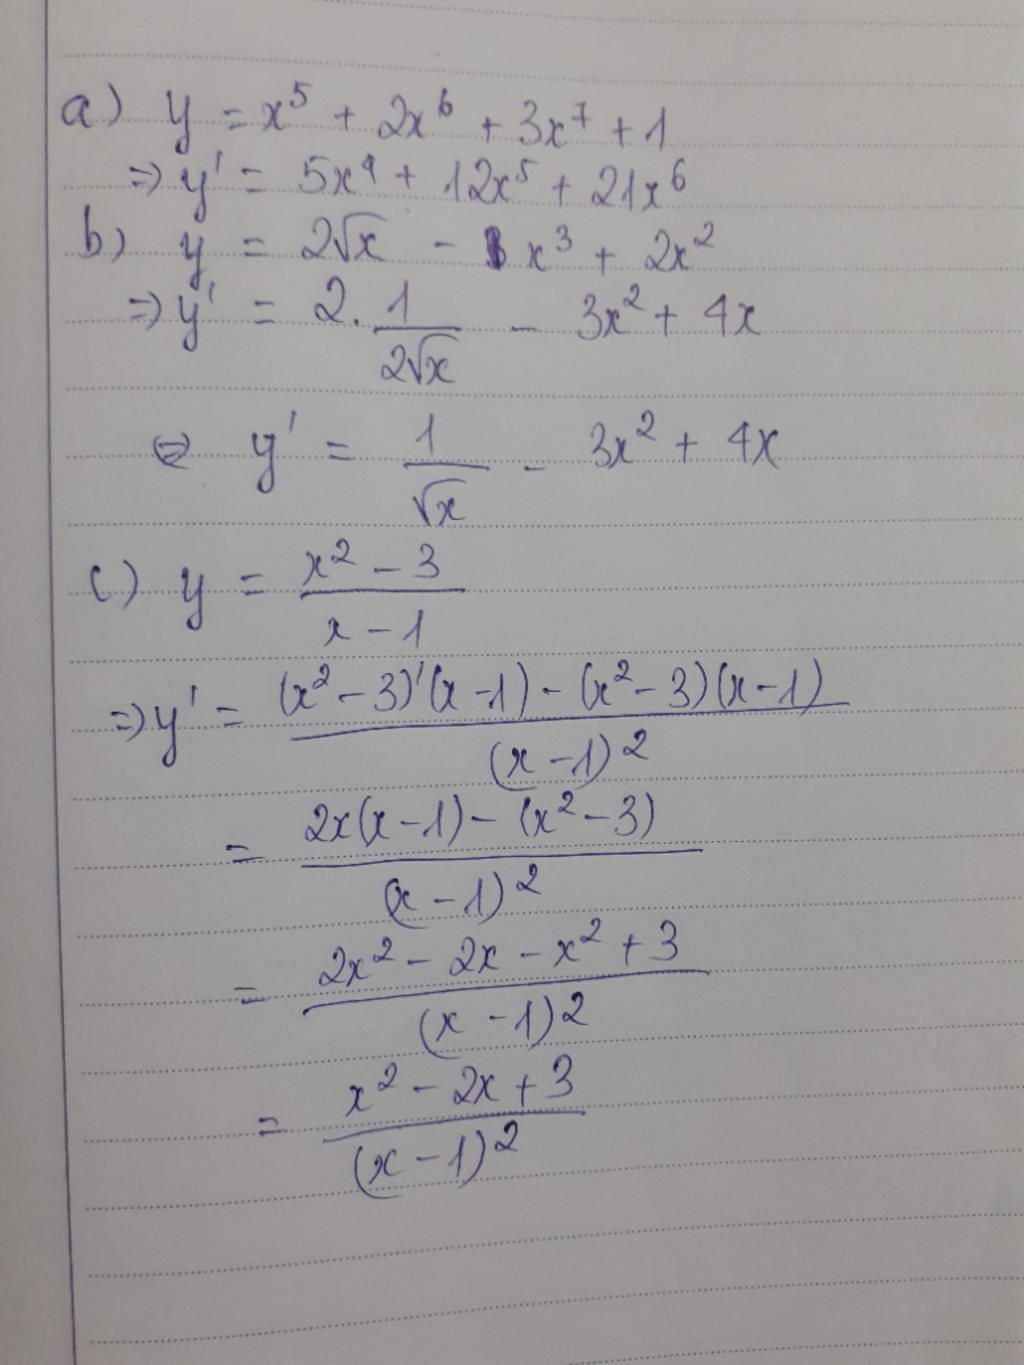 a) y = x⁵ + 2x⁶ + 3x⁷ + 1
⇒ y' = 5x⁴ + 12x⁵ + 21x⁶
b) y = 2√x - x³ + 2x²
⇒ y' = 2. 1/(2√x) - 3x² + 4x
⇔ y' = 1/√x - 3x² + 4x
c) y = (x² - 3)/(x - 1)
⇒ y' = ((x² - 3)'(x - 1) - (x² - 3)(x - 1))/(x - 1)²
= (2x(x - 1) - (x² - 3))/(x - 1)²
= (2x² - 2x - x² + 3)/(x - 1)²
= (x² - 2x + 3)/(x - 1)²